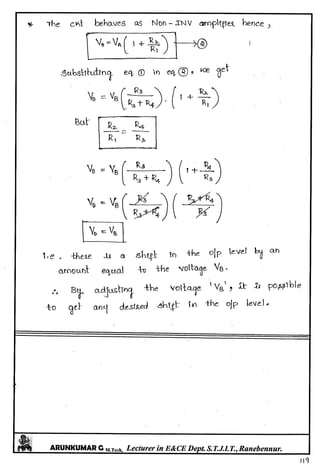 * The ckt behaves as Non-INV amplifier, hence,
V₀ = V_A ( 1 + R₂/R₁ ) → ②
Substituting eq ① in eq ②, we get
V₀ = V_B ( R₃/(R₃ + R₄) ) . ( 1 + R₂/R₁ )
But R₂/R₁ = R₄/R₃
V₀ = V_B ( R₃/(R₃ + R₄) ) ( 1 + R₄/R₃ )
V₀ = V_B ( R₃/(R₃+R₄) ) ( (R₃+R₄)/R₃ )
V₀ = V_B
i.e. there is a shift in the o/p level by an
amount equal to the voltage V_B.
∴ By adjusting the voltage 'V_B', it is possible
to get any desired shift in the o/p level.
ARUNKUMAR G M.Tech, Lecturer in E&CE Dept. S.T.J.I.T., Ranebennur.
119